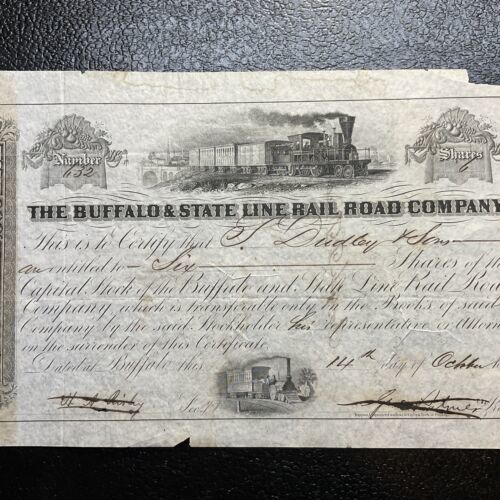 Number
632
Shares
6
THE BUFFALO & STATE LINE RAIL ROAD COMPANY
This is to Certify that S. Dudley & Sons
entitled to Six Shares of the
Capital Stock of the Buffalo and State Line Rail Road
Company, which is transferable only on the Books of said
Company by the said Stockholder his representative or
on the surrender of this Certificate
Dated at Buffalo this 14th day of October
Secty